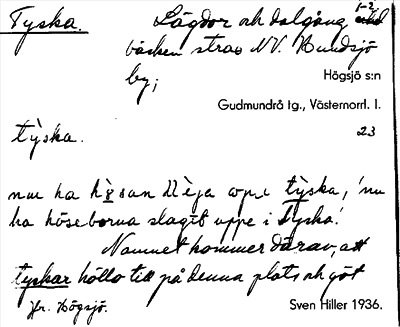 Tyska. Lägdor och dalgång, 1-2
bäcken strax NV. Bundsjö
by;
Högsjö s:n
Gudmundrå tg., Västernorrl. l.
23
tỳska.
nu ha hòsan uppe tỳska, 'nu
ha höseborna slagit uppe i Tyska'.
Namnet kommer därav, att
tyskar höllo till på denna plats och göt
Jfr. Högsjö.
Sven Hiller 1936.